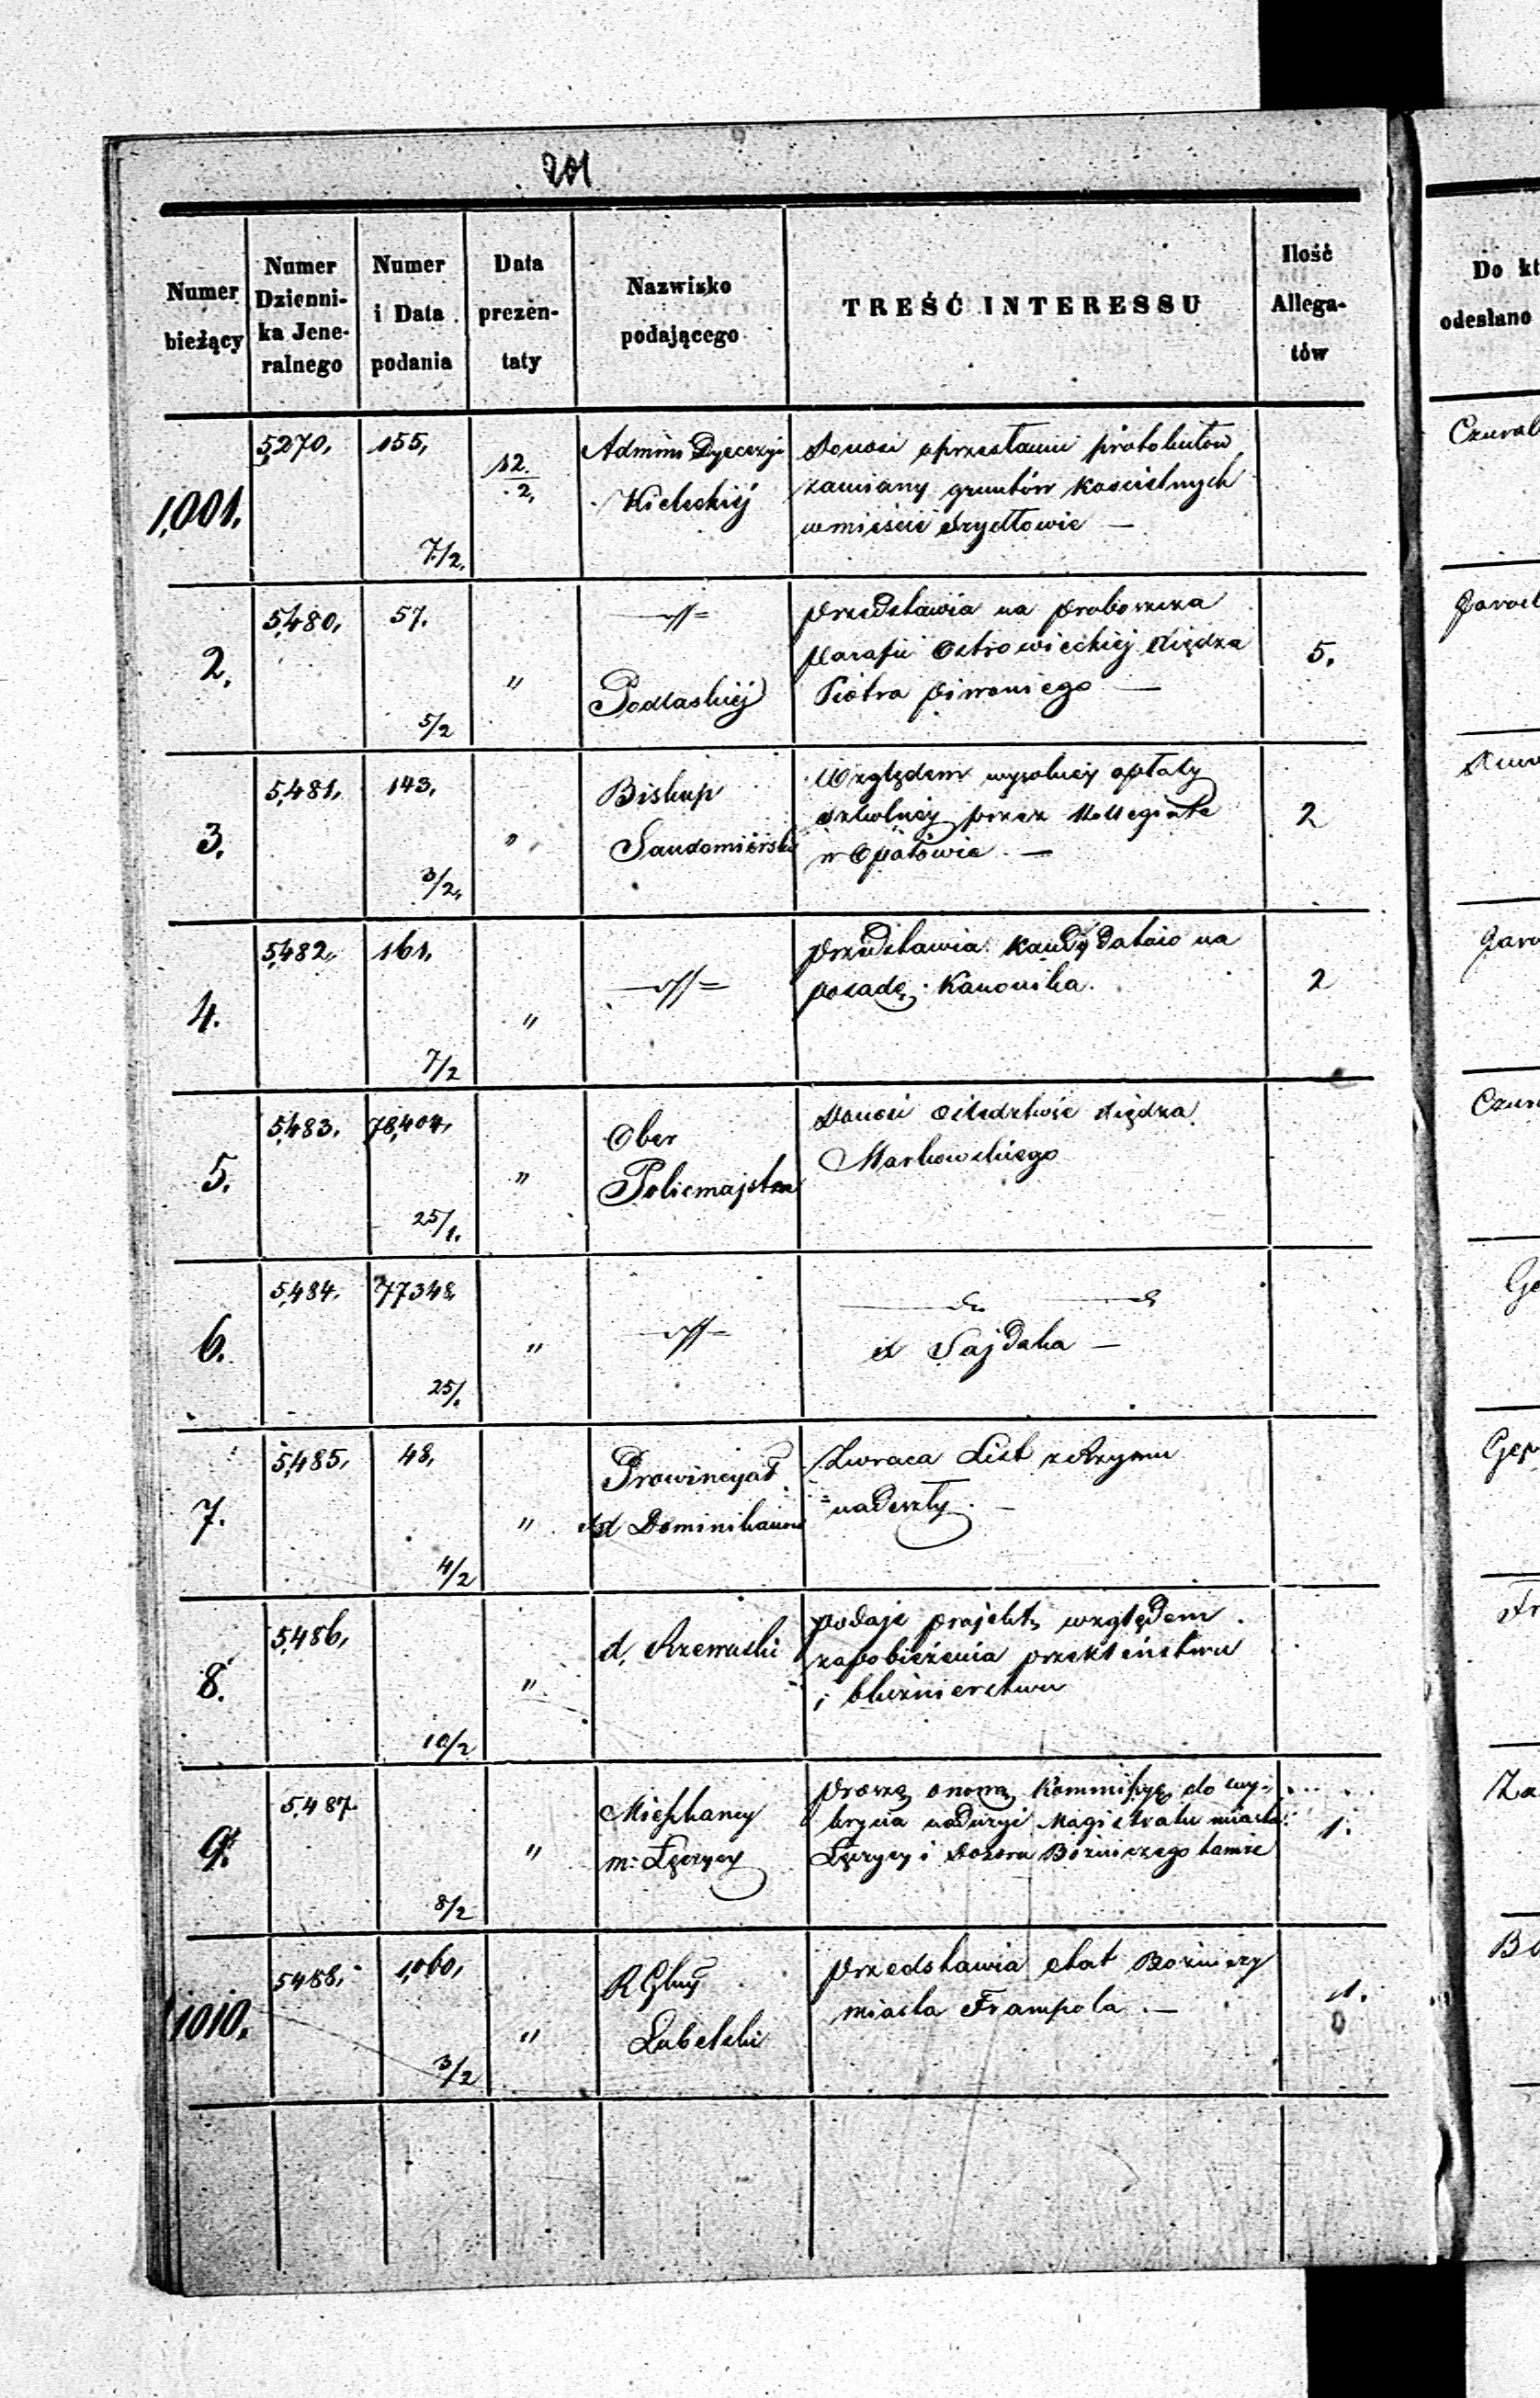 201
Numer bieżący
Numer Dzienni-ka Jene-ralnego
Numer i Data podania
Data prezen-taty
Nazwisko podającego
TREŚĆ INTERESSU
Ilość Allega-tów
Do kt
odesłano
1,001. 5,270, 155, 7/2, 12/2,
Admins Dyecezyi
Kieleckiéj
Donosi o przesłaniu protokułów
zamiany gruntów kościelnych
w mieście Szydłowie —
2. 5,480, 57. 5/2 "
Podlaskiéj
przedstawia na proboszcza
parafii Ostrowieckiéj Księdza
Piotra
5.
3. 5,481, 143, 3/2, "
Biskup
Sandomierski
Względem opłaty
szkolnéj przez Kollegiatę
w Opatowie. —
2
4. 5,482, 161, 7/2 "
przedstawia kandydatów na
posadę Kanonika.
2
5. 5,483. 78,404, 25/1. "
Ober
Policmajster
Donosi o śledztwie Księdza
Markowskiego
6. 5,484. 77348, 25/. "
X Sajdaka —
7. 5,485, 48, 4/2 "
Prowincyał
Dominikanów
Zwraca List z Rzymu
nadeszły. —
8. 5,486, 10/2 "
d. Rzewuski
podaje projekt, względem
zapobieżenia przekleństwu
i bluźnierstwu
9. 5,487. 8/2 "
Mieszkańcy
m: Łęczycy
proszą o nową Kommissyę do wy-
krycia nadużyć Magistratu miasta
Łęczycy i Dozoru Bożniczego tamże
1.
1010. 5488, 1,060, 3/2 "
R Gbny
Lubelski
przedstawia etat Bożniczy
miasta Frampola. —
1.